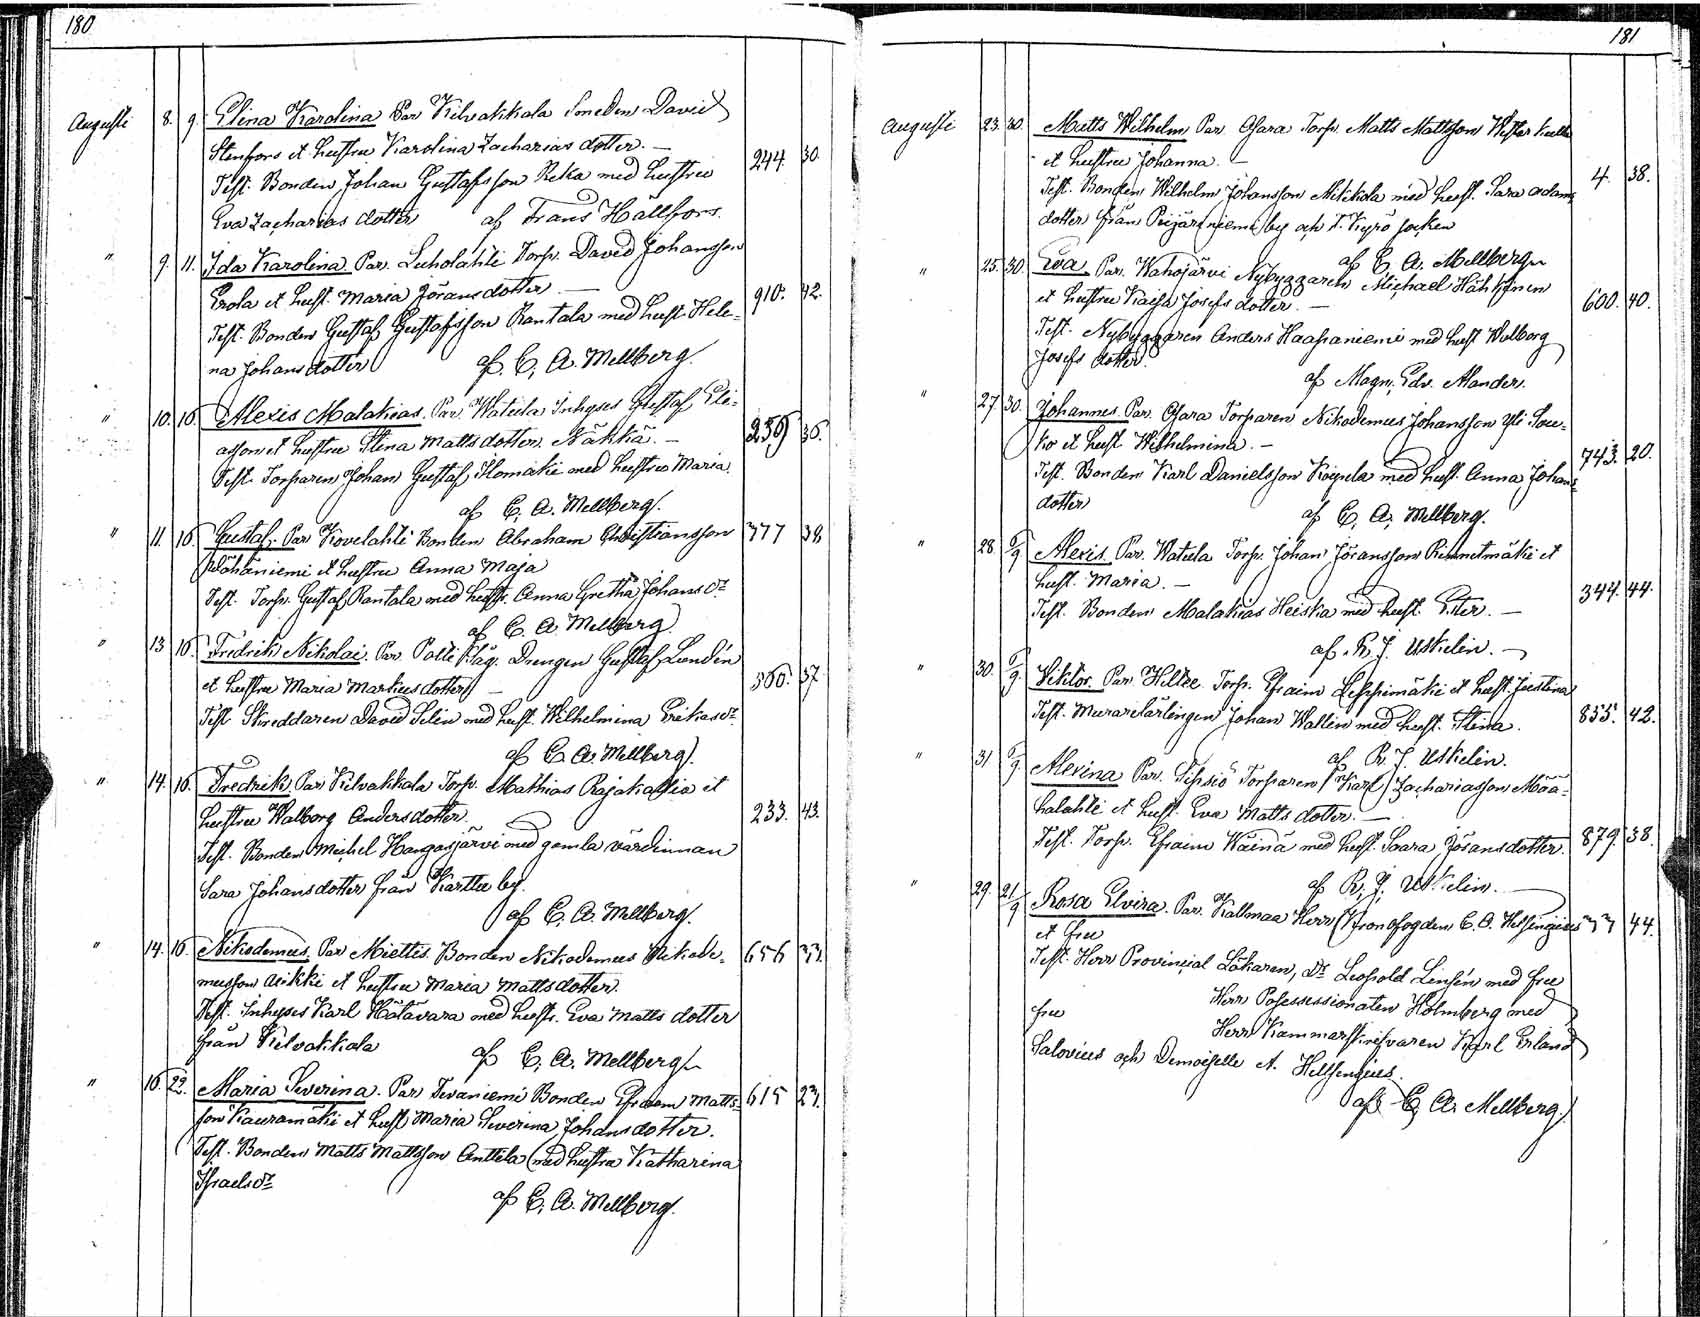 180
Augusti 8. 9. Elina Karolina Par Kilvakkala Smeden David
Stenfors et hustru Karolina Zacharias dotter. —
244. 30.
Test. Bonden Johan Gustafsson Reka med hustru
Eva Zacharias dotter af Frans Hällfors.
" 9. 11. Ida Karolina. Par. Luholahti Torp. David Johansson
Erola et hust. Maria Göransdotter —
910. 42.
Test. Bonden Gustaf Gustafsson Rantala med hust Hele-
na Johansdotter af C, A. Mellberg.
" 10. 16. Alexis Malakias. Par. Watula Inhyses Gustaf Eli-
asson et hustru Stina Mattsdotter Näkkä. —
239 36.
Test. Torparen Johan Gustaf Ilomäki med hustru Maria.
af C, A. Mellberg.
" 11. 16. Gustaf. Par Kovelahti Bonden Abraham Christiansson 377 38
et hustru Anna Maja
Test. Torp. Gustaf Rantala med hustr. Anna Gretha Johansdr
af C. A. Mellberg
" 13 16. Fredrik Nikolai. Par. Drengen Gustaf Lundén
et hustru Maria Markusdotter —
360. 37.
Test Skreddaren David Selin med hust. Wilhelmina Eriksdr
af C. A. Mellberg.
" 14. 16. Fredrik. Par Kilvakkala Torp. Mathias Rajakallio et
hustru Walborg Andersdotter.
233. 43.
Test. Bonden Michel Hangasjärvi med gamla värdinnan
Sara Johansdotter från Karttu by.
af C, A. Mellberg.
" 14. 16. Nikodemus. Par Miettis. Bonden Nikodemus Nikode- 656 33.
musson Uikki et hustru Maria Mattsdotter.
Test. Inhyses Karl Hätävara med hustr. Eva Matts dotter
från Kilvakkala af C, A. Mellberg
" 16. 22. Maria Severina. Par Tevaniemi Bonden Efraem Matts- 615 23.
son Kauramäki et hust Maria Severina Johansdotter.
Test. Bonden Matts Mattsson Anttila med hustru Katharina
Israelsdr
af C, A. Mellberg.
181
Augusti 23. 30. Matts Wilhelm Par Osara Torp. Matts Mattsson
et hustru Johanna. —
4. 38.
Test. Bonden Wilhelm Johansson Mikkola med hust. Sara Adams
dotter från by och T. Kyrö socken
af C, A. Mellberg
" 25. 30. Eva Par. Wahojärvi Nybyggaren Michael Hähkynen
et hustru Kaisa Josefs dotter. —
600. 40.
Test. Nybyggaren Anders Haapaniemi med hust Walborg
Josefs dotter.
af Magn. Edv. Alander.
" 27 30. Johannes. Par. Osara Torparen Nikodemus Johansson Yli Sou-
ko et hust Wilhelmina. —
743. 20.
Test. Bonden Karl Danielsson Köpilä med hust. Anna Johans-
dotter
af C, A. Mellberg.
" 28. 6/9 Alexis. Par. Watula Torp. Johan Göransson Rimmetmäki et
hust. Maria. —
344. 44.
Test. Bonden Malakias Heiska med hust. Ester. —
af R. J. Uskelin. —
" 30. 6/9 Viktor. Par. Hiltee. Torp. Efraim Leppimäki et hust. Justina
Test. Murarelärlingen Johan Wallin med hust. Stina.
855. 42.
af R. J. Uskelin.
" 31 6/9 Alexina Par. Sipsiö Torparen Karl Zachariasson Mää-
halahti et hust. Eva Matts dotter. —
Test. Torp. Efraim Wäinä med hust. Saara Göransdotter. 879. 38.
af R, J. Uskelin. —
" 29. 21/9 Rosa Elvira. Par. Kallmaa Herr Kronofogden C. A. Helsingius 33 44.
et fru
Test. Herr Provincial Läkaren, Dr Leopold Linsén med fru
Herr Possessionaten Holmberg med
fru
Herr Kammarskrifvaren Karl Erland
Salovius och Demoiselle A. Hellsengius.
af C, A. Mellberg.